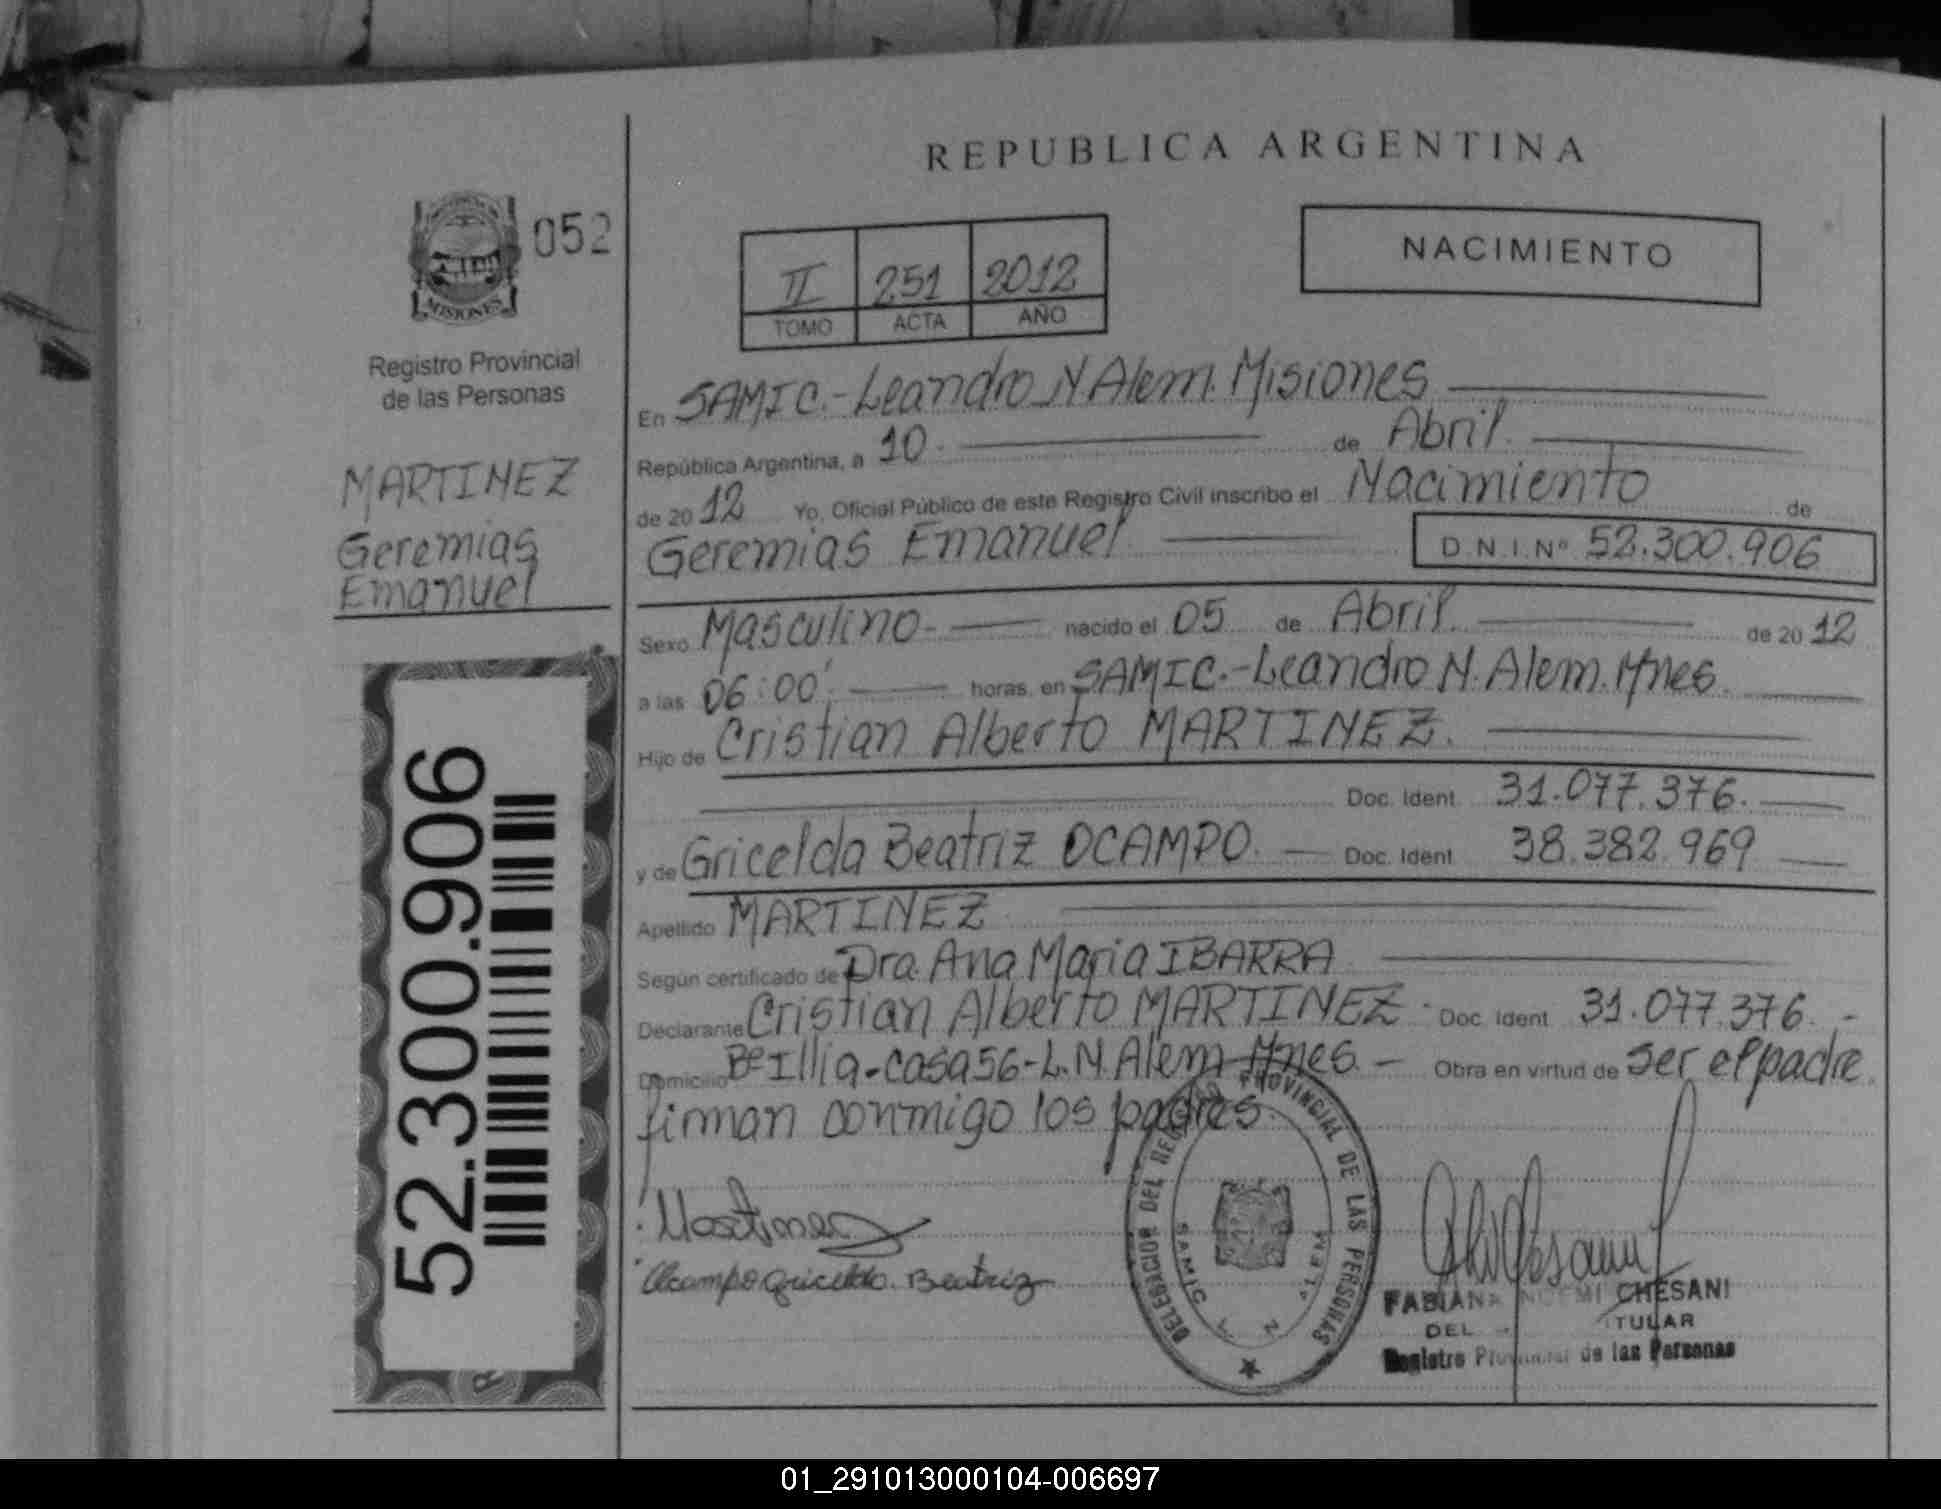 REPUBLICA ARGENTINA
MISIONES
052
Registro Provincial
de las Personas
MARTINEZ
Geremias
Emanuel
52.300.906
II 251 2012
TOMO ACTA AÑO
NACIMIENTO
En SAMIC.-Leandro N Alem. Misiones
República Argentina, a 10 de Abril
de 2012 Yo, Oficial Público de este Registro Civil inscribo el Nacimiento de
Geremias Emanuel D.N.I.Nº 52.300.906
Sexo Masculino- nacido el 05 de Abril de 2012
a las 06:00' horas, en SAMIC.-Leandro N. Alem. Mnes.
Hijo de Cristian Alberto MARTINEZ.
Doc. Ident. 31.077.376.
y de Gricelda Beatriz OCAMPO. Doc. Ident. 38.382.969
Apellido MARTINEZ
Según certificado de Dra. Ana Maria IBARRA
Declarante Cristian Alberto MARTINEZ Doc. Ident. 31.077.376.-
Domicilio Bº Illia-casa 56-L.N. Alem-Mnes.- Obra en virtud de ser el padre.
firman conmigo los padres.
Martinez
Ocampo Gricelda Beatriz
DELEGACION DEL REGISTRO PROVINCIAL DE LAS PERSONAS
SAMIC L. N. ALEM
FABIANA NOEMI CHESANI
DEL TITULAR
Registro Provincial de las Personas
01_291013000104-006697